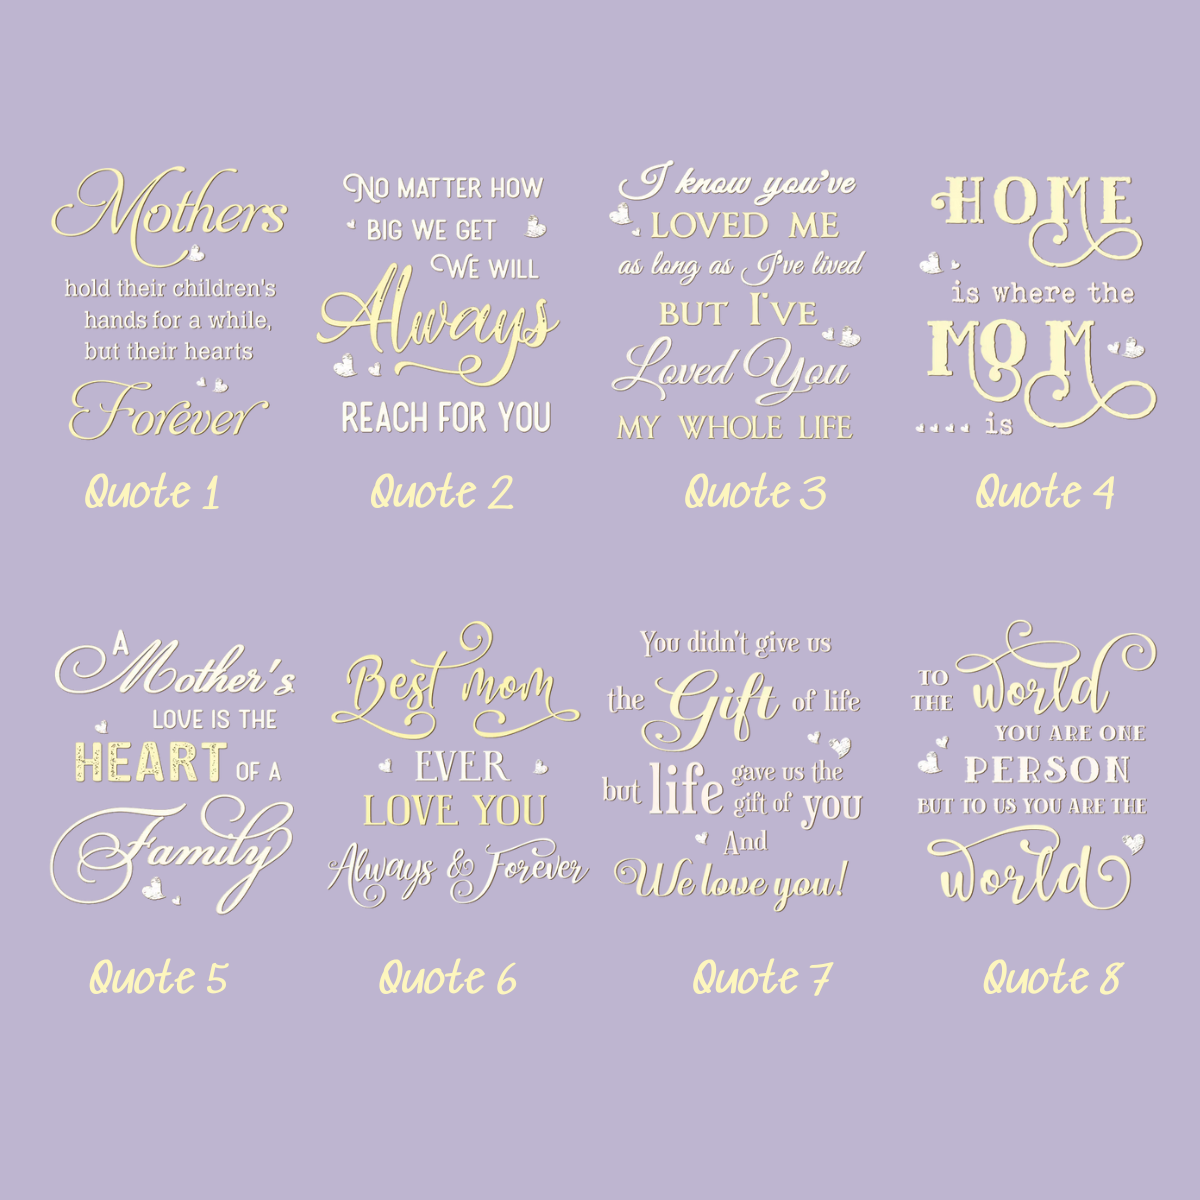 Mothers
hold their children's
hands for a while,
but their hearts
Forever
Quote 1
NO MATTER HOW
BIG WE GET
WE WILL
Always
REACH FOR YOU
Quote 2
I know you've
LOVED ME
as long as I've lived
BUT I'VE
Loved You
MY WHOLE LIFE
Quote 3
HOME
is where the
MOM
.... is
Quote 4
A
Mother's
LOVE IS THE
HEART OF A
Family
Quote 5
Best mom
EVER
LOVE YOU
Always & Forever
Quote 6
You didn't give us
the Gift of life
but life gave us the
gift of you
And
We love you!
Quote 7
TO
THE world
YOU ARE ONE
PERSON
BUT TO US YOU ARE THE
world
Quote 8